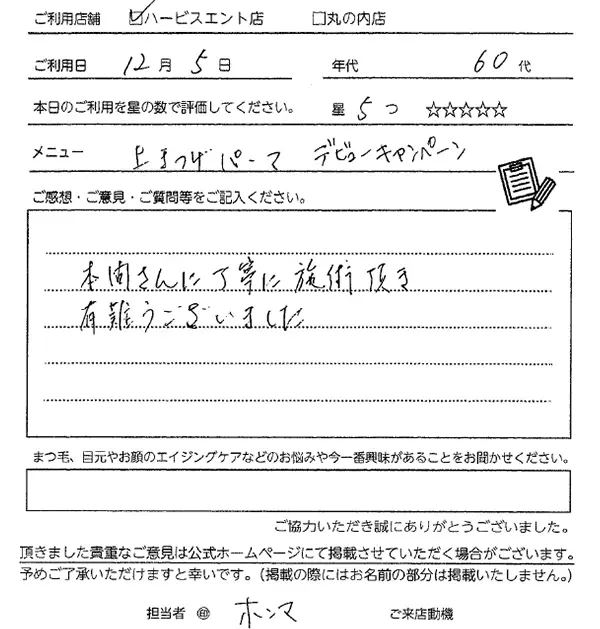 ご利用店舗 ☑ハービスエント店 □丸の内店
ご利用日 12月 5日 年代 60代
本日のご利用を星の数で評価してください。 星 5つ ☆☆☆☆☆
メニュー 上まつげパーマ デビューキャンペーン
ご感想・ご意見・ご質問等をご記入ください。
本間さんに丁寧に施術頂き
有難うございました
まつ毛、目元やお顔のエイジングケアなどのお悩みや今一番興味があることをお聞かせください。
ご協力いただき誠にありがとうございました。
頂きました貴重なご意見は公式ホームページにて掲載させていただく場合がございます。
予めご了承いただけますと幸いです。(掲載の際にはお名前の部分は掲載いたしません。)
担当者 ㊞ ホンマ ご来店動機